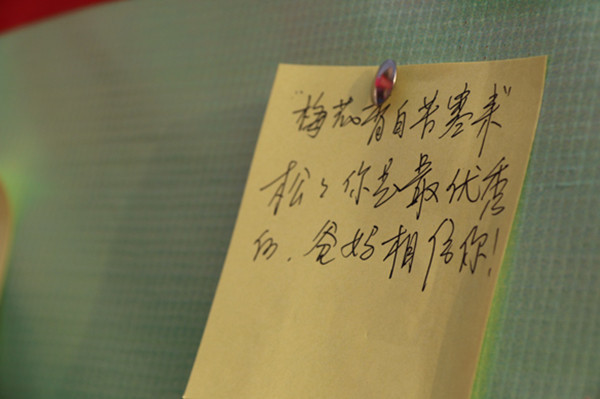 “梅花香自苦寒来”
松松你是最优秀
的，爸妈相信你！